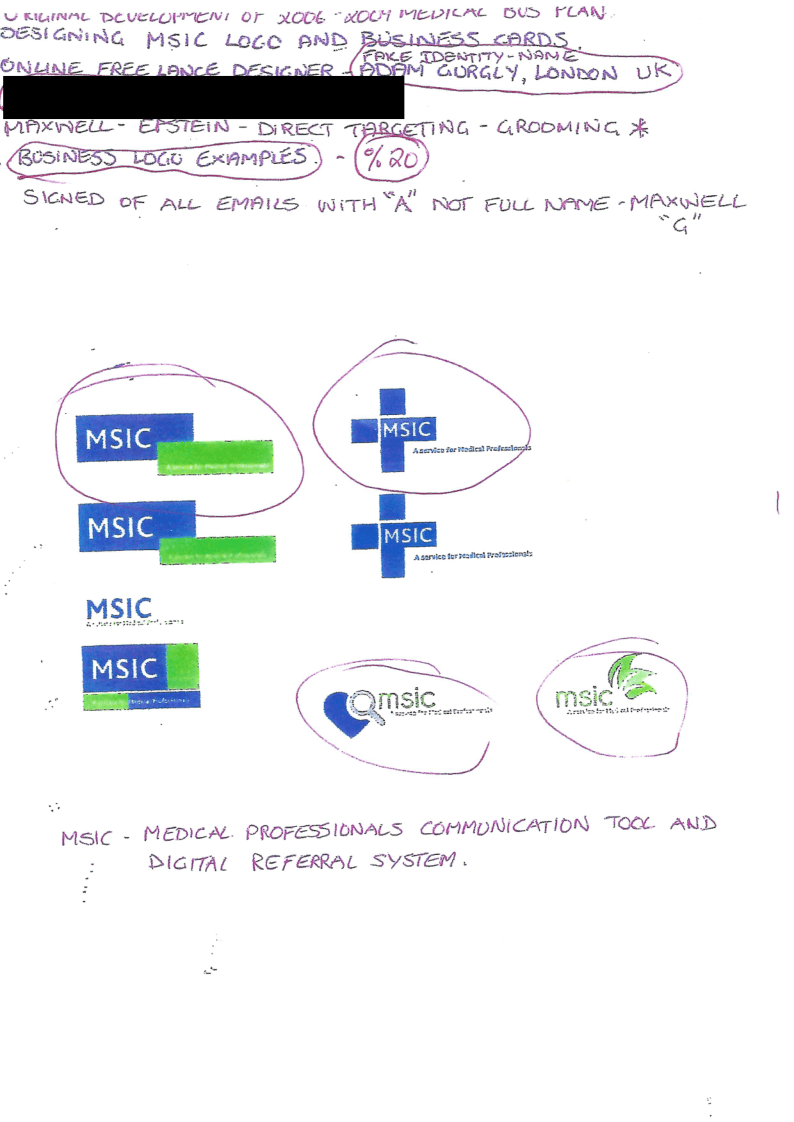 ORIGINAL DEVELOPMENT OF 2006-2009 MEDICAL BUS PLAN.
DESIGNING MSIC LOGO AND BUSINESS CARDS.
FAKE IDENTITY-NAME
ONLINE FREE LANCE DESIGNER - ADAM GURGLY, LONDON UK
MAXWELL - EPSTEIN - DIRECT TARGETING - GROOMING *
BUSINESS LOGO EXAMPLES. - %20
SIGNED OF ALL EMAILS WITH "A" NOT FULL NAME - MAXWELL
"G"
MSIC
A service for Medical Professionals
MSIC
A service for Medical Professionals
MSIC
A service for Medical Professionals
MSIC
A service for Medical Professionals
MSIC
A service for Medical Professionals
MSIC
A service for Medical Professionals
msic
A service for Medical Professionals
msic
A service for Medical Professionals
MSIC - MEDICAL PROFESSIONALS COMMUNICATION TOOL AND
DIGITAL REFERRAL SYSTEM.